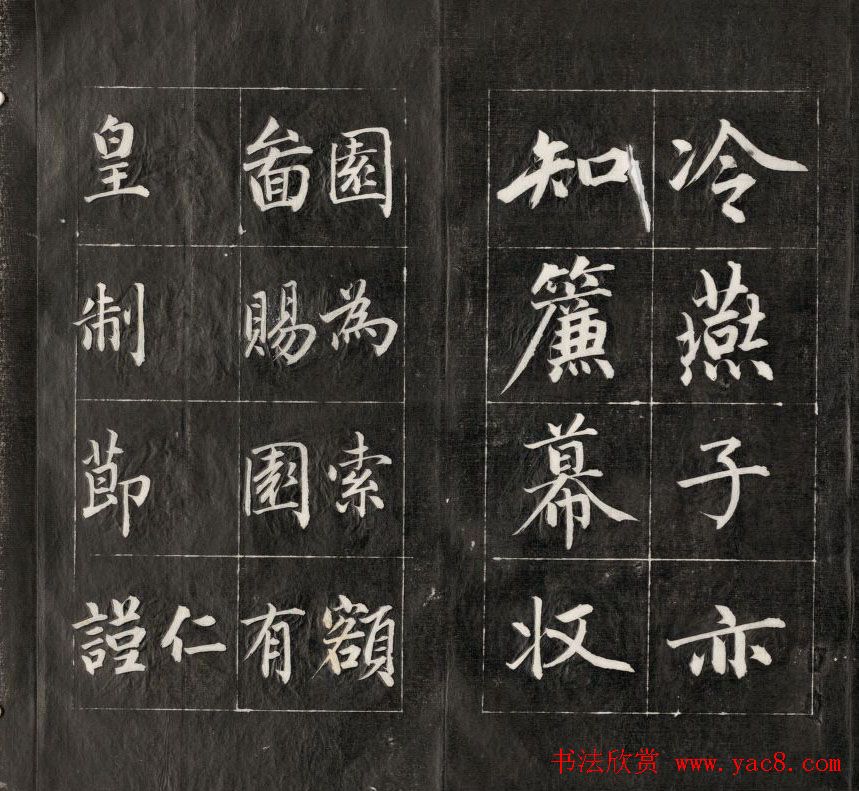 冷燕子亦
知簾幕收
園為索額
啚賜園有
仁
皇制節謹
书法欣赏 www.yac8.com